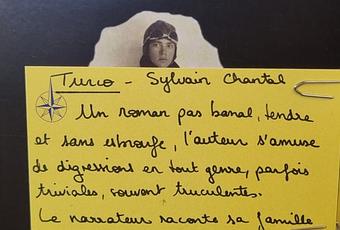 Turco - Sylvain Chantal
Un roman pas banal, tendre
et sans esbroufe, l'auteur s'amuse
de digressions en tout genre, parfois
triviales, souvent truculentes.
Le narrateur raconte sa famille